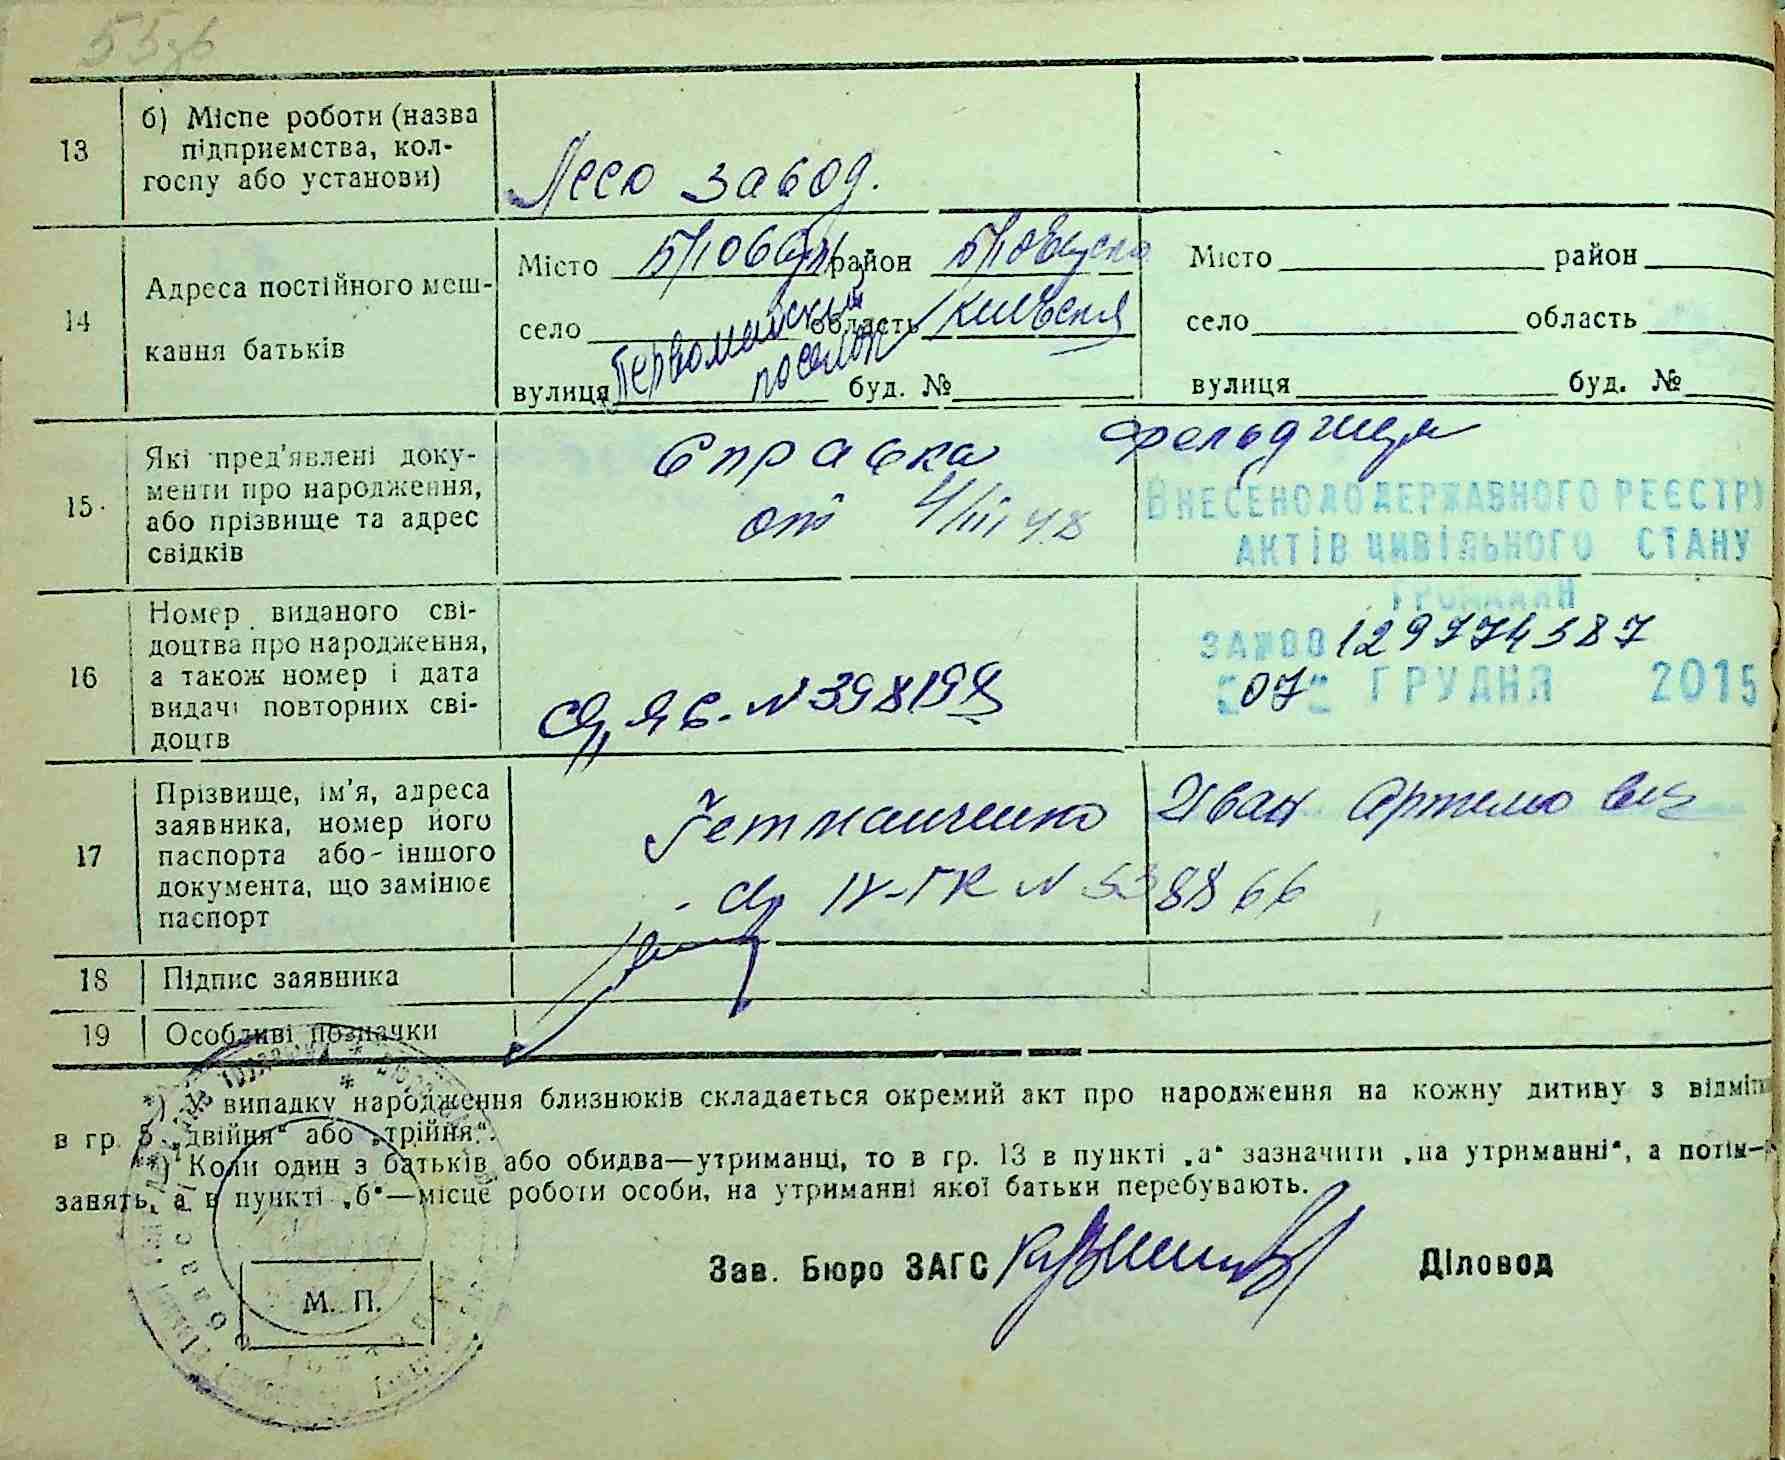 55зв
13
б) Місце роботи (назва
підприємства, кол-
госпу або установи)
Лесо завод.
14
Адреса постійного меш-
кання батьків
Місто Бровары район Бровуски
село область Киевская
вулиця Первомайский поселок буд. №
Місто район
село область
вулиця буд. №
15.
Які пред'явлені доку-
менти про народження,
або прізвище та адрес
свідків
Справка фельдшера
от 4/III 48
ВНЕСЕНО ДО ДЕРЖАВНОГО РЕЄСТРУ
АКТІВ ЦИВІЛЬНОГО СТАНУ
ГРОМАДЯН
ЗА №00129774387
07 ГРУДНЯ 2015
16
Номер виданого сві-
доцтва про народження,
а також номер і дата
видачі повторних сві-
доцтв
№398198
17
Прізвище, ім'я, адреса
заявника, номер його
паспорта або іншого
документа, що замінює
паспорт
Гетманченко Иван Артемович
IV-ГК № 538866
18
Підпис заявника
19
Особливі позначки
*) У випадку народження близнюків складається окремий акт про народження на кожну дитину з відмітк
в гр. 5 „двійня“ або „трійня“.
*) Коли один з батьків або обидва—утриманці, то в гр. 13 в пункті „а“ зазначити „на утриманні“, а потім—
занять, а в пункті „б“—місце роботи особи, на утриманні якої батьки перебувають.
Зав. Бюро ЗАГС Діловод
М. П.